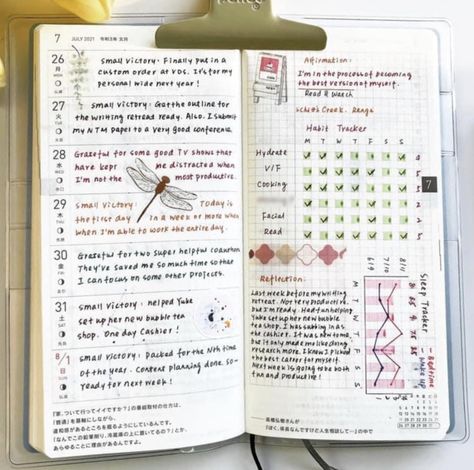 7 JULY 2021 令和3年 文月
26
月
small victory: Finally put in a
custom order at VDS. It's for my
personal wide next year!
27
火
small victory: Got the outline for
the writing retread ready. Also. I submit
my NTM paper to a very good conference.
28
水
Grateful for some good TV shows that
have kept me distracted when
I'm not the most productive.
29
木
small victory: Today is
the first day in a week or more when
when I'm able to work the entire day.
30
金
Grateful for two super helpful coauthors
They've saved me so much time so that
I can focus on some other projects.
31
土
small victory: helped Yuke
set up her new bubble tea
shop. One day Cashier!
8/1
日
small victory: Packed for the Nth time
of the year. Content planning done. so-
Ready for next week!
「家、ついて行ってイイですか?」の番組取材の仕方は、
Affirmation:
I'm in the process of becoming
the best version of myself.
Read & Watch
Schitt's Creek. Range
Habit Tracker
M T W T F S S
Hydrate
V/F
Cooking
Facial
Read
7
Reflection:
Last week before my writing
retreat. Not very productive.
but I'm ready. Had fun helping
Yuke set up her new bubble
tea shop. I was subbing in as
the cashier. It was awesome,
but it only made me like doing
research more. I know I picked
the best career for myself.
Next week is going to be both
fun and productive!
Sleep Tracker
— Bedtime
— Wake up
M T W T F S S
高橋弘樹さんが